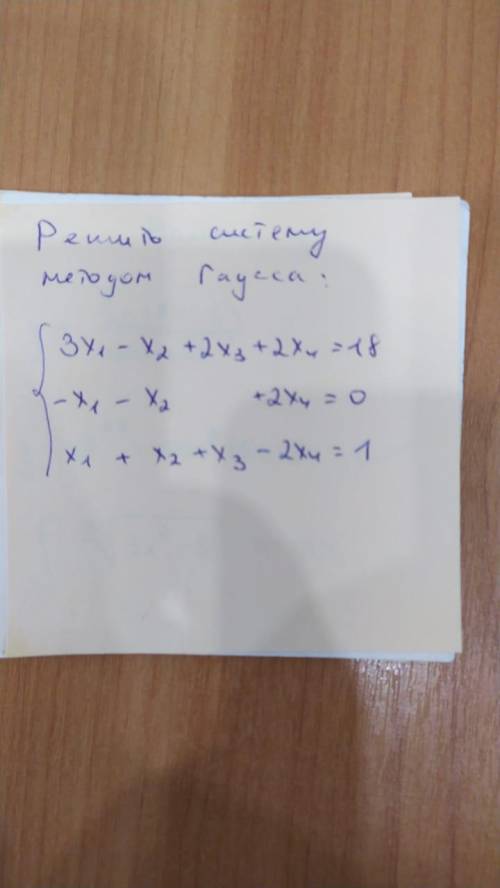 Решить систему
методом Гаусса:
3x₁ - x₂ + 2x₃ + 2x₄ = 18
-x₁ - x₂ + 2x₄ = 0
x₁ + x₂ + x₃ - 2x₄ = 1